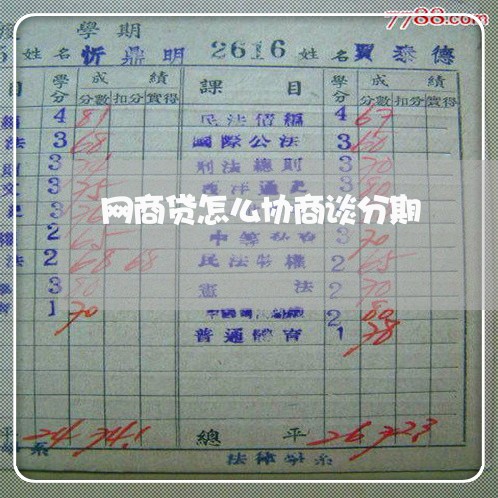 7788.com
學期
姓名 忻鼎明 2616 姓名 賈泰德
目 學分 成績 課目 學分 成績
分數 扣分 實得 分數 扣分 實得
4 81 民法債編 4 67
法 3 68 國際公法 3 60
3 刑法總則 3 70
文 3 75 西洋通史 3 80
網商贷怎么协商谈分期
2 65 3 70
法 2 68 68 民法物權 2 65
3 80 憲法 2 70
1 70 2 80
普通體育 1 78
平 24 74.1 總平 26 72.3
系 法律學系